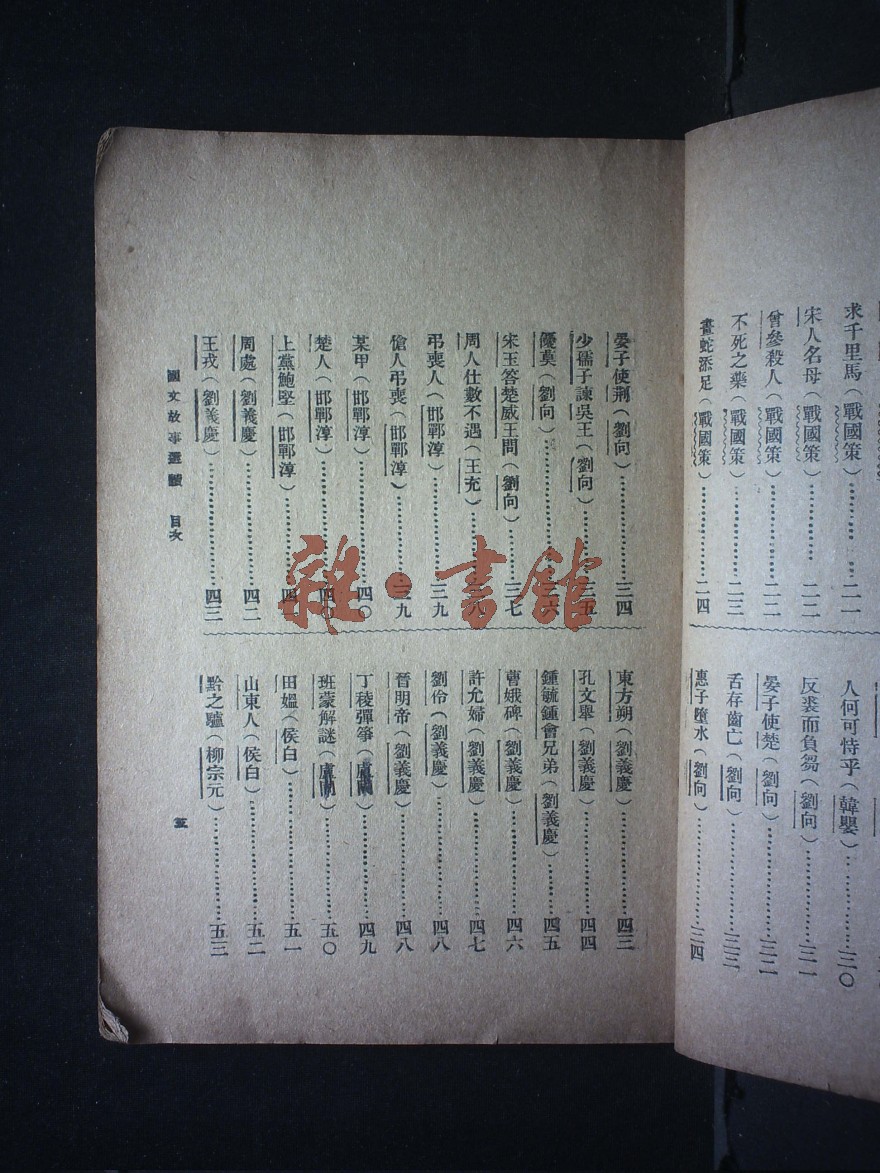 求千里馬(戰國策)……二一
宋人名母(戰國策)……二二
曾參殺人(戰國策)……二二
不死之藥(戰國策)……二三
畫蛇添足(戰國策)……二四
人何可恃乎(韓嬰)……三〇
反裘而負芻(劉向)……三一
晏子使楚(劉向)……三二
舌存齒亡(劉向)……三三
惠子墮水(劉向)……三四
晏子使荆(劉向)……三四
少孺子諫吳王(劉向)……三五
優莫(劉向)……三六
宋玉答楚威王問(劉向)……三七
周人仕數不遇(王充)……三八
弔喪人(邯鄲淳)……三九
傖人弔喪(邯鄲淳)……三九
某甲(邯鄲淳)……四〇
楚人(邯鄲淳)……四〇
上黨鮑堅(邯鄲淳)……四一
周處(劉義慶)……四二
王戎(劉義慶)……四三
東方朔(劉義慶)……四三
孔文舉(劉義慶)……四四
鍾毓鍾會兄弟(劉義慶)……四五
曹娥碑(劉義慶)……四六
許允婦(劉義慶)……四七
劉伶(劉義慶)……四八
晉明帝(劉義慶)……四八
丁稜彈箏(盧)……四九
班蒙解謎(盧)……五〇
田媼(侯白)……五一
山東人(侯白)……五二
黔之驢(柳宗元)……五三
國文故事選讀 目次
三
雜·書館